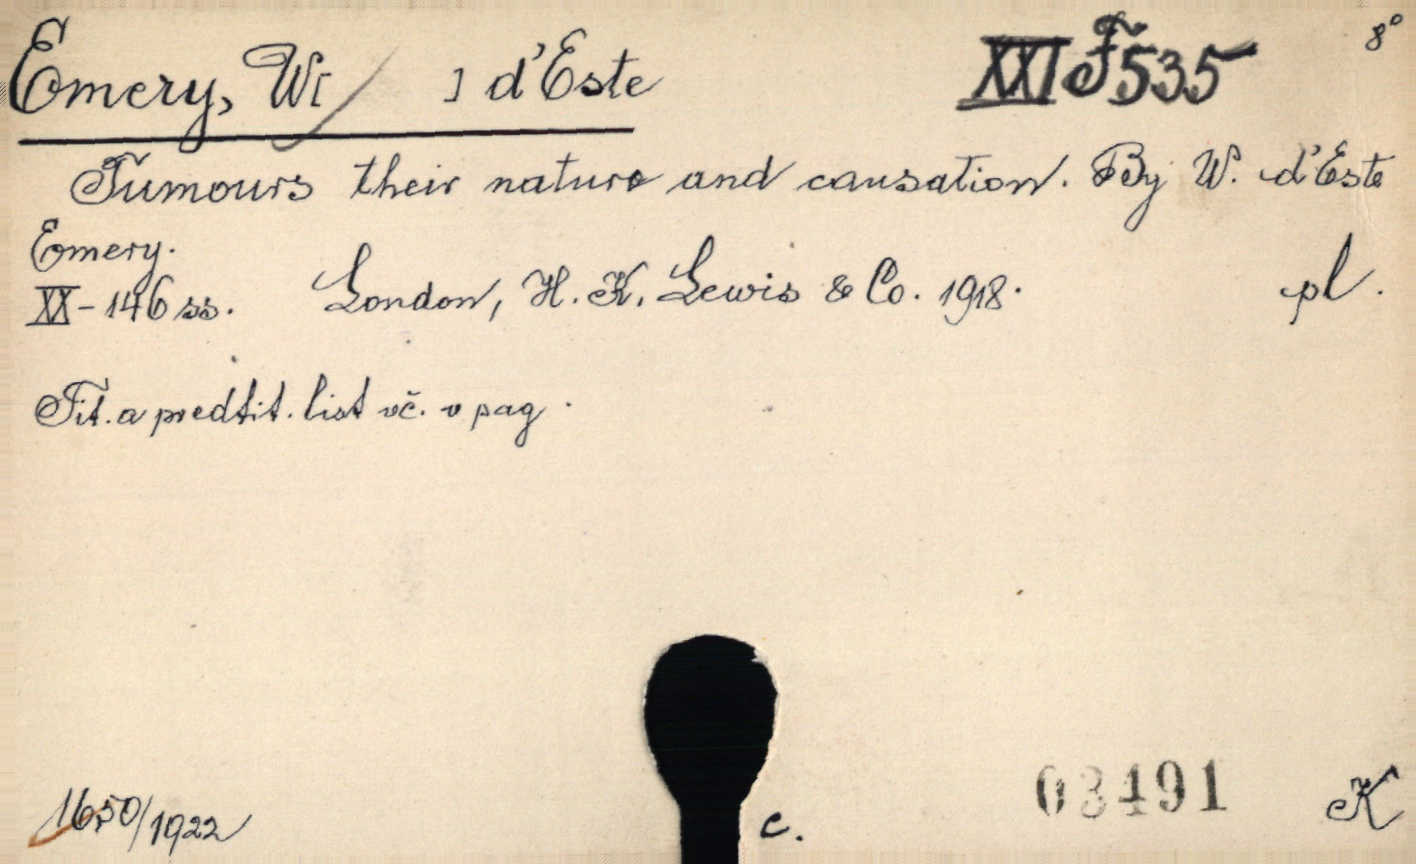 Emery, W[ ] d'Este XXI F 535 8°
Tumours their nature and causation. By W. d'Este
Emery.
XX-146 ss. London, H. K. Lewis & Co. 1918. pl.
Tit. a predtit. list vč. v pag.
1650/1922 c. 03491 K